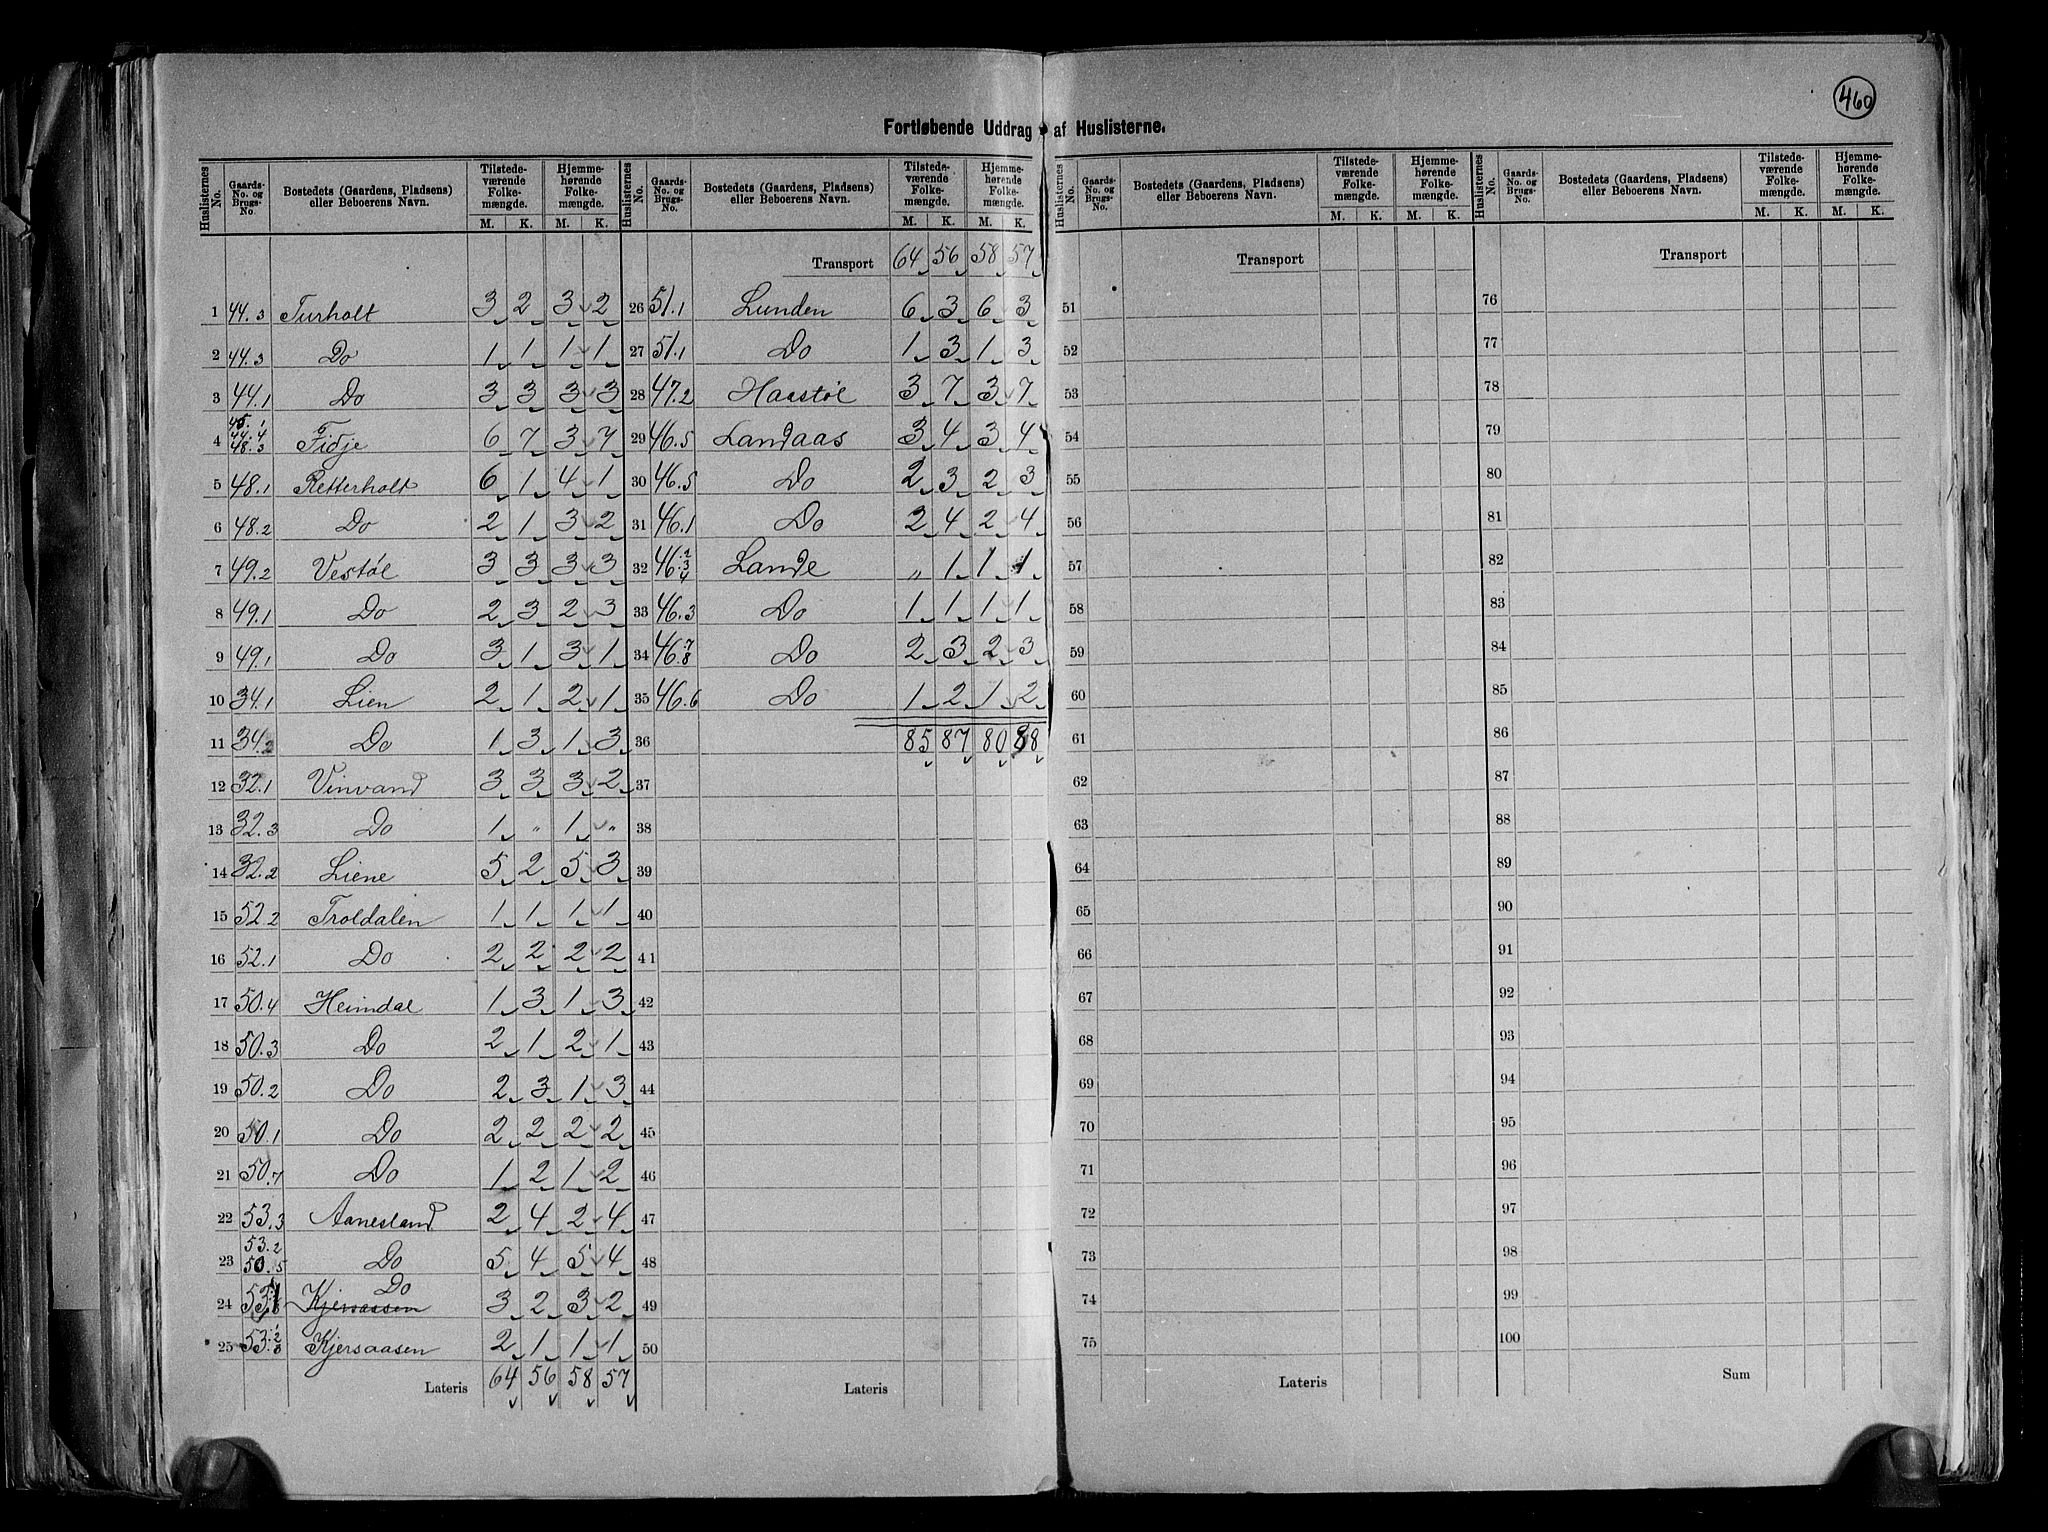 460
Fortløbende Uddrag af Huslisterne.
Huslisternes No. | Gaards-No. og Brugs-No. | Bostedets (Gaardens, Pladsens) eller Beboerens Navn. | Tilstede-værende Folke-mængde. M. K. | Hjemme-hørende Folke-mængde. M. K.
1 44.3 Turholt 3 2 3 2
2 44.3 Do 1 1 1 1
3 44.1 Do 3 3 3 3
4 45.1 44.4 48.3 Fidje 6 7 3 7
5 48.1 Retterholt 6 1 4 1
6 48.2 Do 2 1 3 2
7 49.2 Vestøl 3 3 3 3
8 49.1 Do 2 3 2 3
9 49.1 Do 3 1 3 1
10 34.1 Lien 2 1 2 1
11 34.2 Do 1 3 1 3
12 32.1 Vinvand 3 3 3 2
13 32.3 Do 1 " 1 "
14 32.2 Liene 5 2 5 3
15 52.2 Troldalen 1 1 1 1
16 52.1 Do 2 2 2 2
17 50.4 Heimdal 1 3 1 3
18 50.3 Do 2 1 2 1
19 50.2 Do 2 3 1 3
20 50.1 Do 2 2 2 2
21 50.7 Do 1 2 1 2
22 53.3 Aanesland 2 4 2 4
23 53.2 50.5 Do 5 4 5 4
24 53.1 Do Kjersaasen 3 2 3 2
25 53. Kjersaasen 2 1 1 1
Lateris 64 56 58 57
Huslisternes No. | Gaards-No. og Brugs-No. | Bostedets (Gaardens, Pladsens) eller Beboerens Navn. | Tilstede-værende Folke-mængde. M. K. | Hjemme-hørende Folke-mængde. M. K.
Transport 64 56 58 57
26 51.1 Lunden 6 3 6 3
27 51.1 Do 1 3 1 3
28 47.2 Haastøl 3 7 3 7
29 46.5 Landaas 3 4 3 4
30 46.5 Do 2 3 2 3
31 46.1 Do 2 4 2 4
32 46.2.3.4 Lande " 1 1 1
33 46.3 Do 1 1 1 1
34 46.7.8 Do 2 3 2 3
35 46.6 Do 1 2 1 2
36 85 87 80 88
37
38
39
40
41
42
43
44
45
46
47
48
49
50
Lateris
Huslisternes No. | Gaards-No. og Brugs-No. | Bostedets (Gaardens, Pladsens) eller Beboerens Navn. | Tilstede-værende Folke-mængde. M. K. | Hjemme-hørende Folke-mængde. M. K.
Transport
51
52
53
54
55
56
57
58
59
60
61
62
63
64
65
66
67
68
69
70
71
72
73
74
75
Lateris
Huslisternes No. | Gaards-No. og Brugs-No. | Bostedets (Gaardens, Pladsens) eller Beboerens Navn. | Tilstede-værende Folke-mængde. M. K. | Hjemme-hørende Folke-mængde. M. K.
Transport
76
77
78
79
80
81
82
83
84
85
86
87
88
89
90
91
92
93
94
95
96
97
98
99
100
Sum